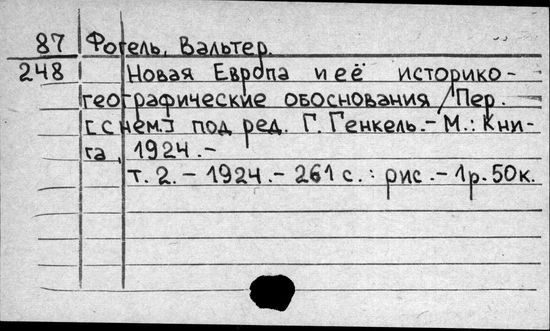 87 Фогель, Вальтер.
248 Новая Европа и её историко-
географические обоснования / Пер.
[с нем.] под ред. Г. Генкель. - М.: Кни-
га, 1924. -
т. 2. - 1924. - 261 с. : рис. - 1р. 50к.